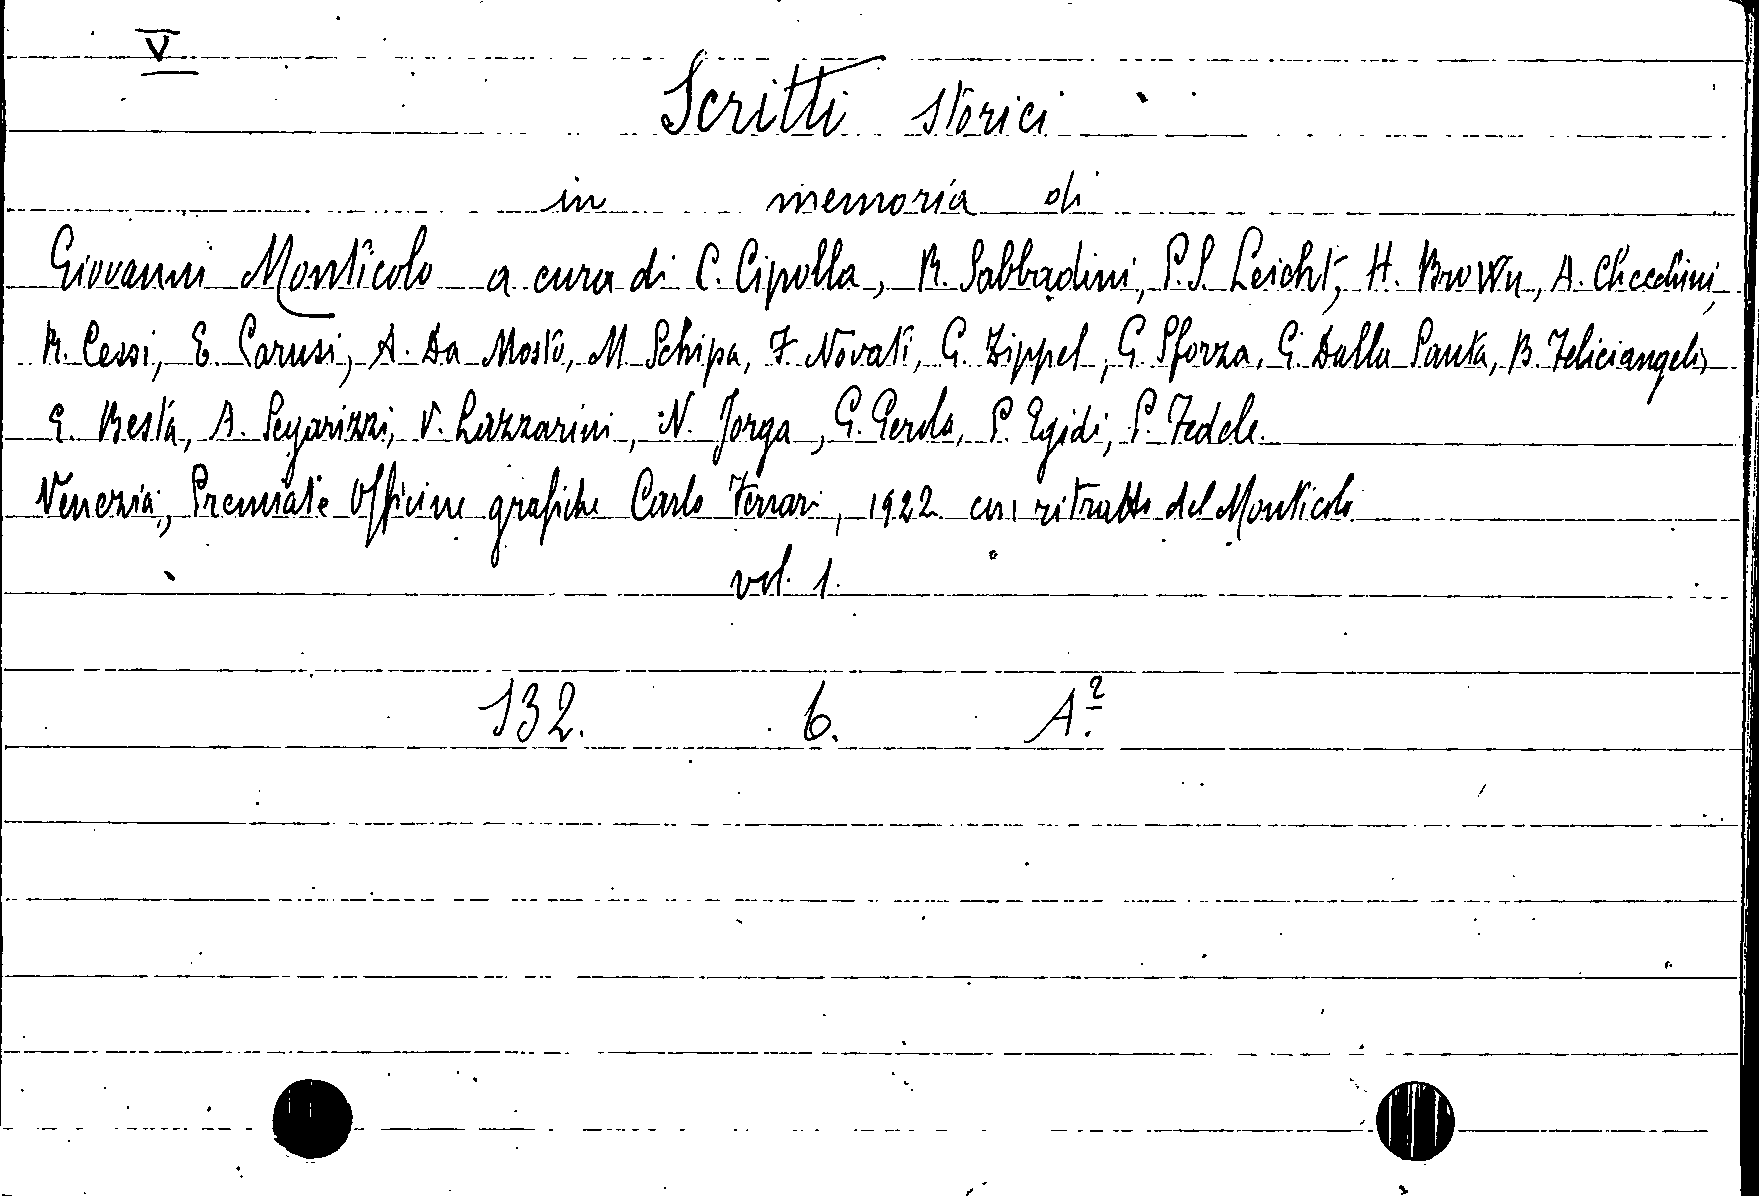 V
Scritti storici
in memoria di
Giovanni Monticolo a cura di C. Cipolla, R. Sabbadini, P.S. Leicht, H. Brown, A. Checchini,
R. Cessi, E. Carusi, A. Da Mosto, M Schipa, F. Novati, G. Zippel, G. Sforza, G. Dalla Santa, B. Feliciangeli,
E. Besta, A. Segarizzi, V. Lazzarini, N. Jorga, G. Gerola, P. Egidi, P. Fedele.
Venezia, Premiate Officine grafiche Carlo Ferrari, 1922 con ritratto del Monticolo
vol. 1.
132. 6. A.²